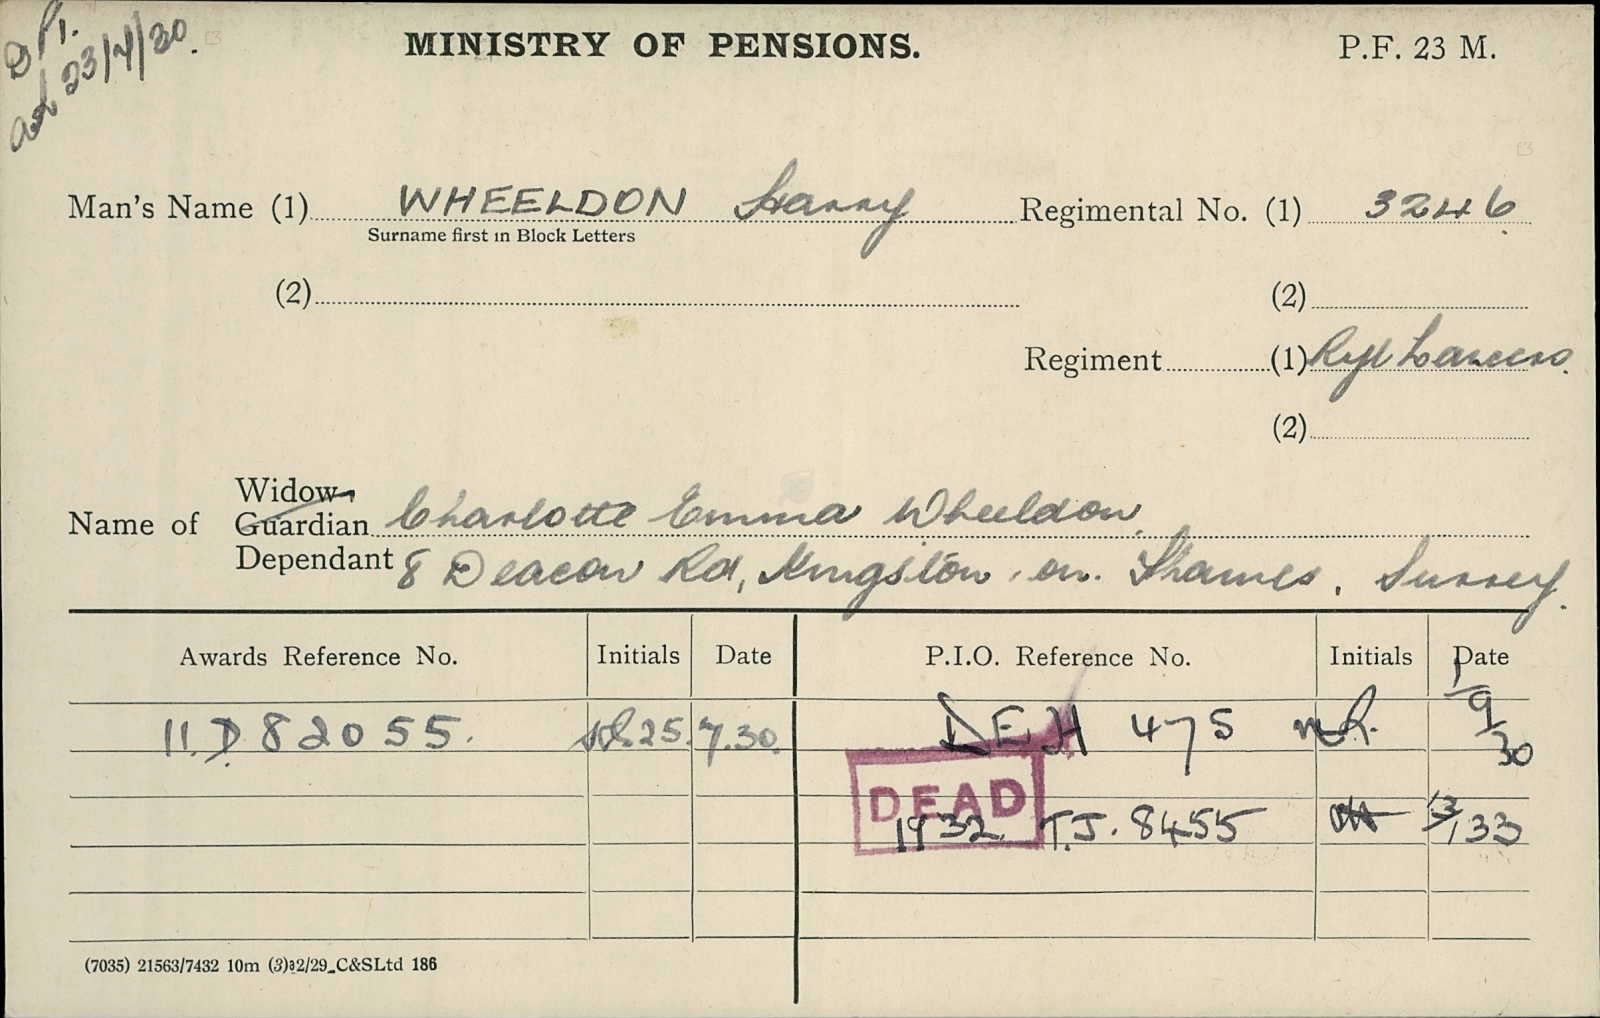 23/7/30
MINISTRY OF PENSIONS.
P.F. 23 M.
Man's Name (1) WHEELDON Harry Regimental No. (1) 3246
Surname first in Block Letters
(2) (2)
Regiment (1) Ryl Lancers.
(2)
Widow
Name of Guardian Charlotte Emma Wheeldon.
Dependant 8 Deacon Rd, Kingston. on. Thames, Surrey.
Awards Reference No. Initials Date P.I.O. Reference No. Initials Date
11.D 82055. 25.7.30 DEH 475 1/9/30
DEAD
1932 T.J. 8455 /33
(7035) 21563/7432 10m (3) 2/29 C&SLtd 186